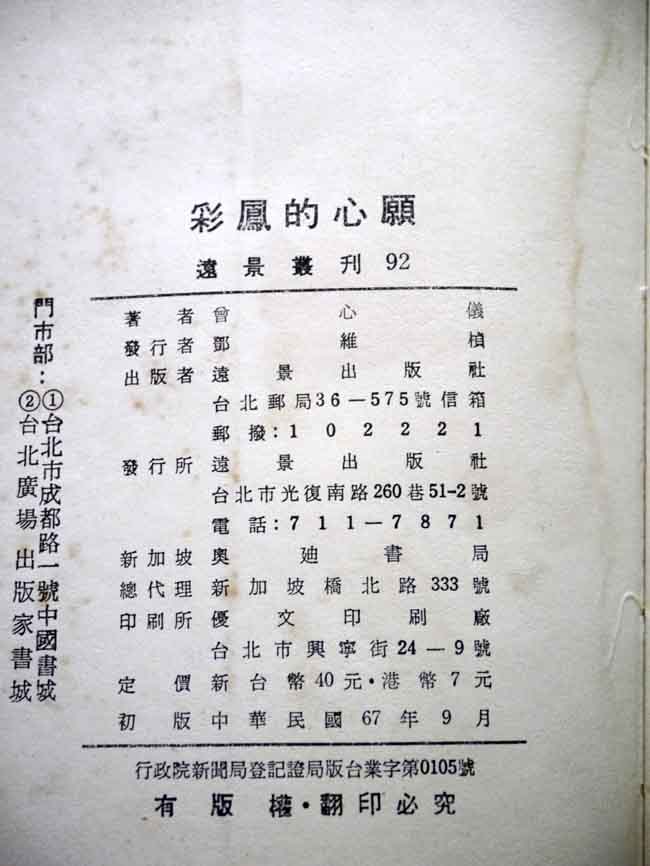 彩鳳的心願
遠景叢刊 92
著者曾心儀
發行者鄧維楨
出版者遠景出版社
台北郵局36—575號信箱
郵撥:102221
發行所遠景出版社
台北市光復南路260巷51-2號
電話:711—7871
新加坡奧迪書局
總代理新加坡橋北路333號
印刷所優文印刷廠
台北市興寧街24—9號
定價新台幣40元·港幣7元
初版中華民國67年9月
行政院新聞局登記證局版台業字第0105號
有版權·翻印必究
門市部:①台北市成都路一號中國書城
②台北廣場出版家書城